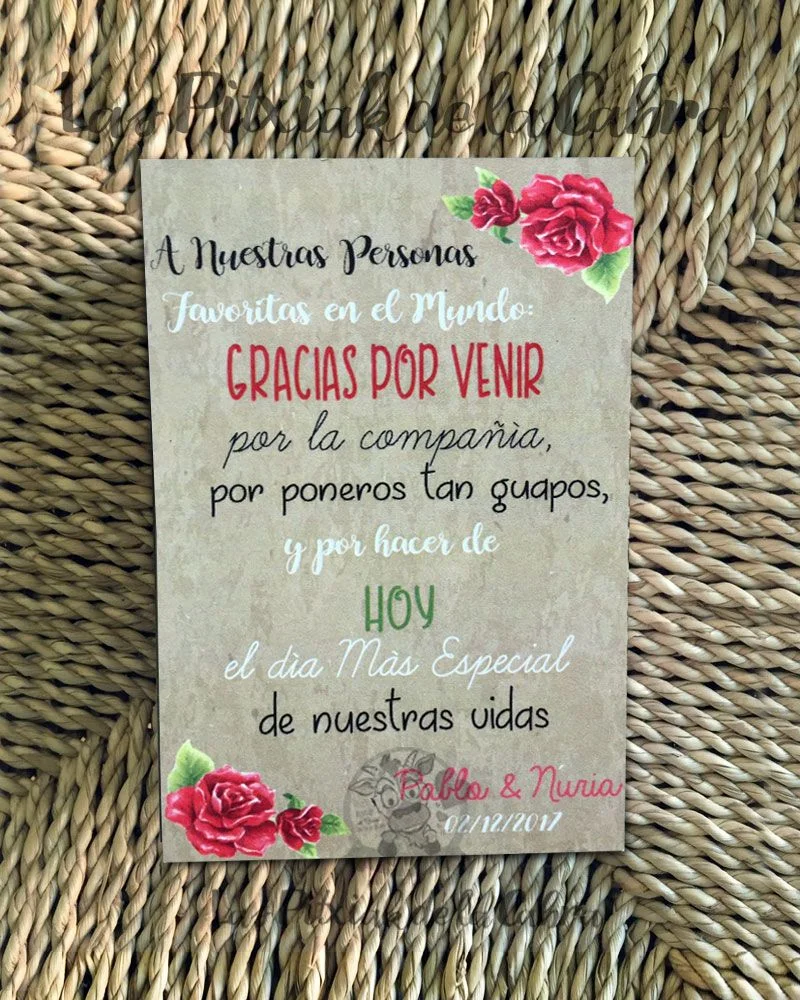 Las Pitxiak de la Cabra
A Nuestras Personas
Favoritas en el Mundo:
GRACIAS POR VENIR
por la compañìa,
por poneros tan guapos,
y por hacer de
HOY
el dìa Màs Especial
de nuestras vidas
Pablo & Nuria
02/12/2017
Las Pitxiak de la Cabra